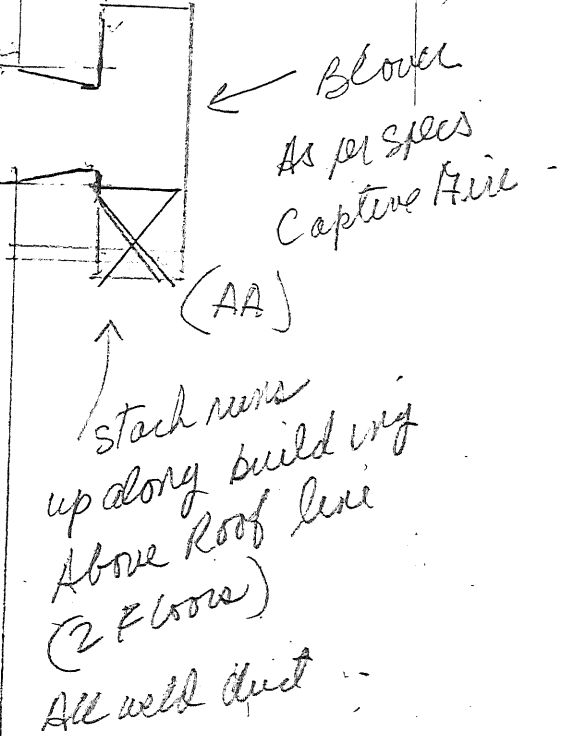 Blower
As per specs
Captive Aire -
(AA)
stack runs
up along building
Above Roof line
(2 Floors)
All weld duct